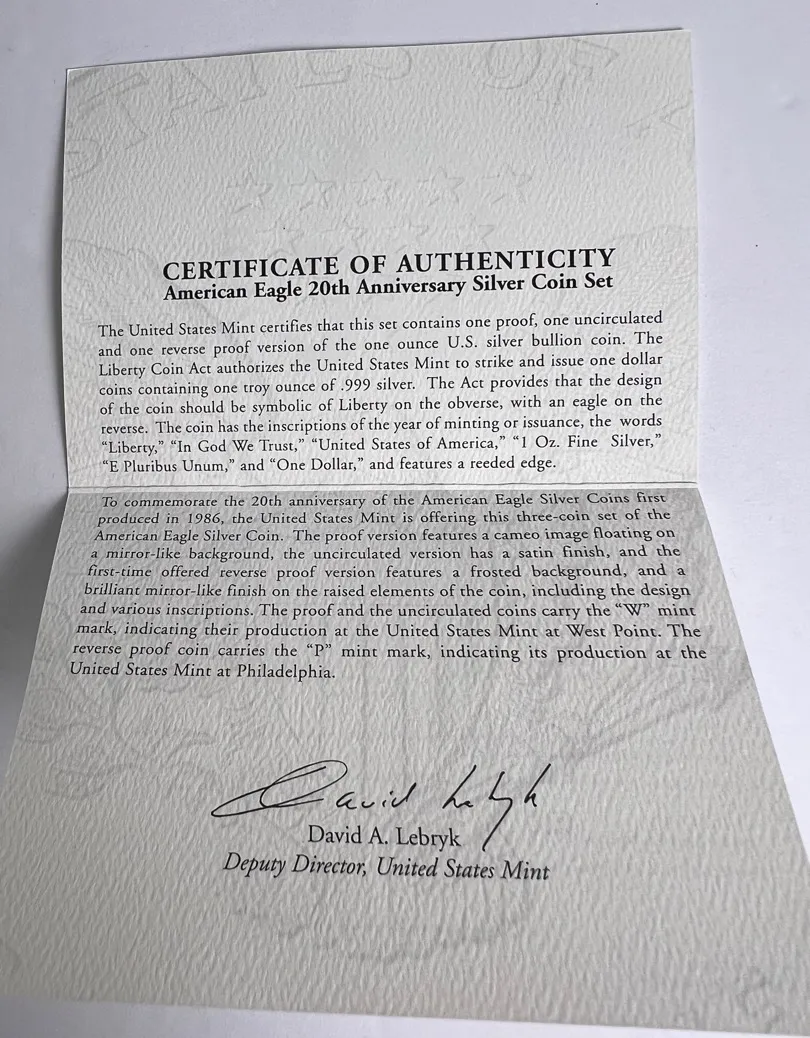 STATES OF A
CERTIFICATE OF AUTHENTICITY
American Eagle 20th Anniversary Silver Coin Set
The United States Mint certifies that this set contains one proof, one uncirculated
and one reverse proof version of the one ounce U.S. silver bullion coin. The
Liberty Coin Act authorizes the United States Mint to strike and issue one dollar
coins containing one troy ounce of .999 silver. The Act provides that the design
of the coin should be symbolic of Liberty on the obverse, with an eagle on the
reverse. The coin has the inscriptions of the year of minting or issuance, the words
“Liberty,” “In God We Trust,” “United States of America,” “1 Oz. Fine Silver,”
“E Pluribus Unum,” and “One Dollar,” and features a reeded edge.
To commemorate the 20th anniversary of the American Eagle Silver Coins first
produced in 1986, the United States Mint is offering this three-coin set of the
American Eagle Silver Coin. The proof version features a cameo image floating on
a mirror-like background, the uncirculated version has a satin finish, and the
first-time offered reverse proof version features a frosted background, and a
brilliant mirror-like finish on the raised elements of the coin, including the design
and various inscriptions. The proof and the uncirculated coins carry the “W” mint
mark, indicating their production at the United States Mint at West Point. The
reverse proof coin carries the “P” mint mark, indicating its production at the
United States Mint at Philadelphia.
David Lebryk
David A. Lebryk
Deputy Director, United States Mint